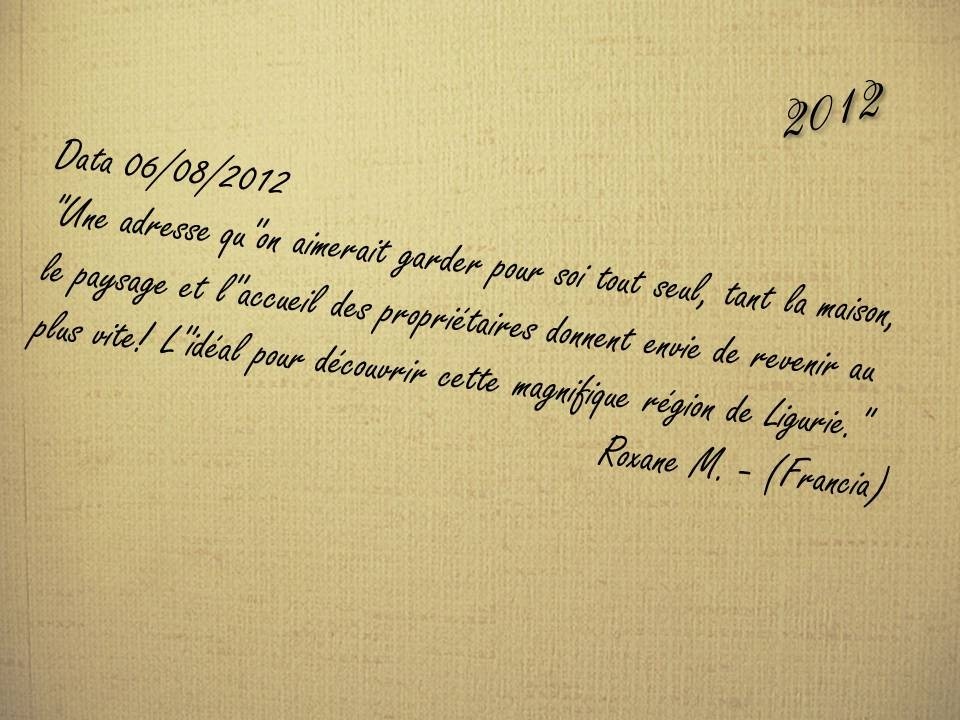 2012
Data 06/08/2012
"Une adresse qu"on aimerait garder pour soi tout seul, tant la maison,
le paysage et l"accueil des propriétaires donnent envie de revenir au
plus vite! L"idéal pour découvrir cette magnifique région de Ligurie."
Roxane M. - (Francia)